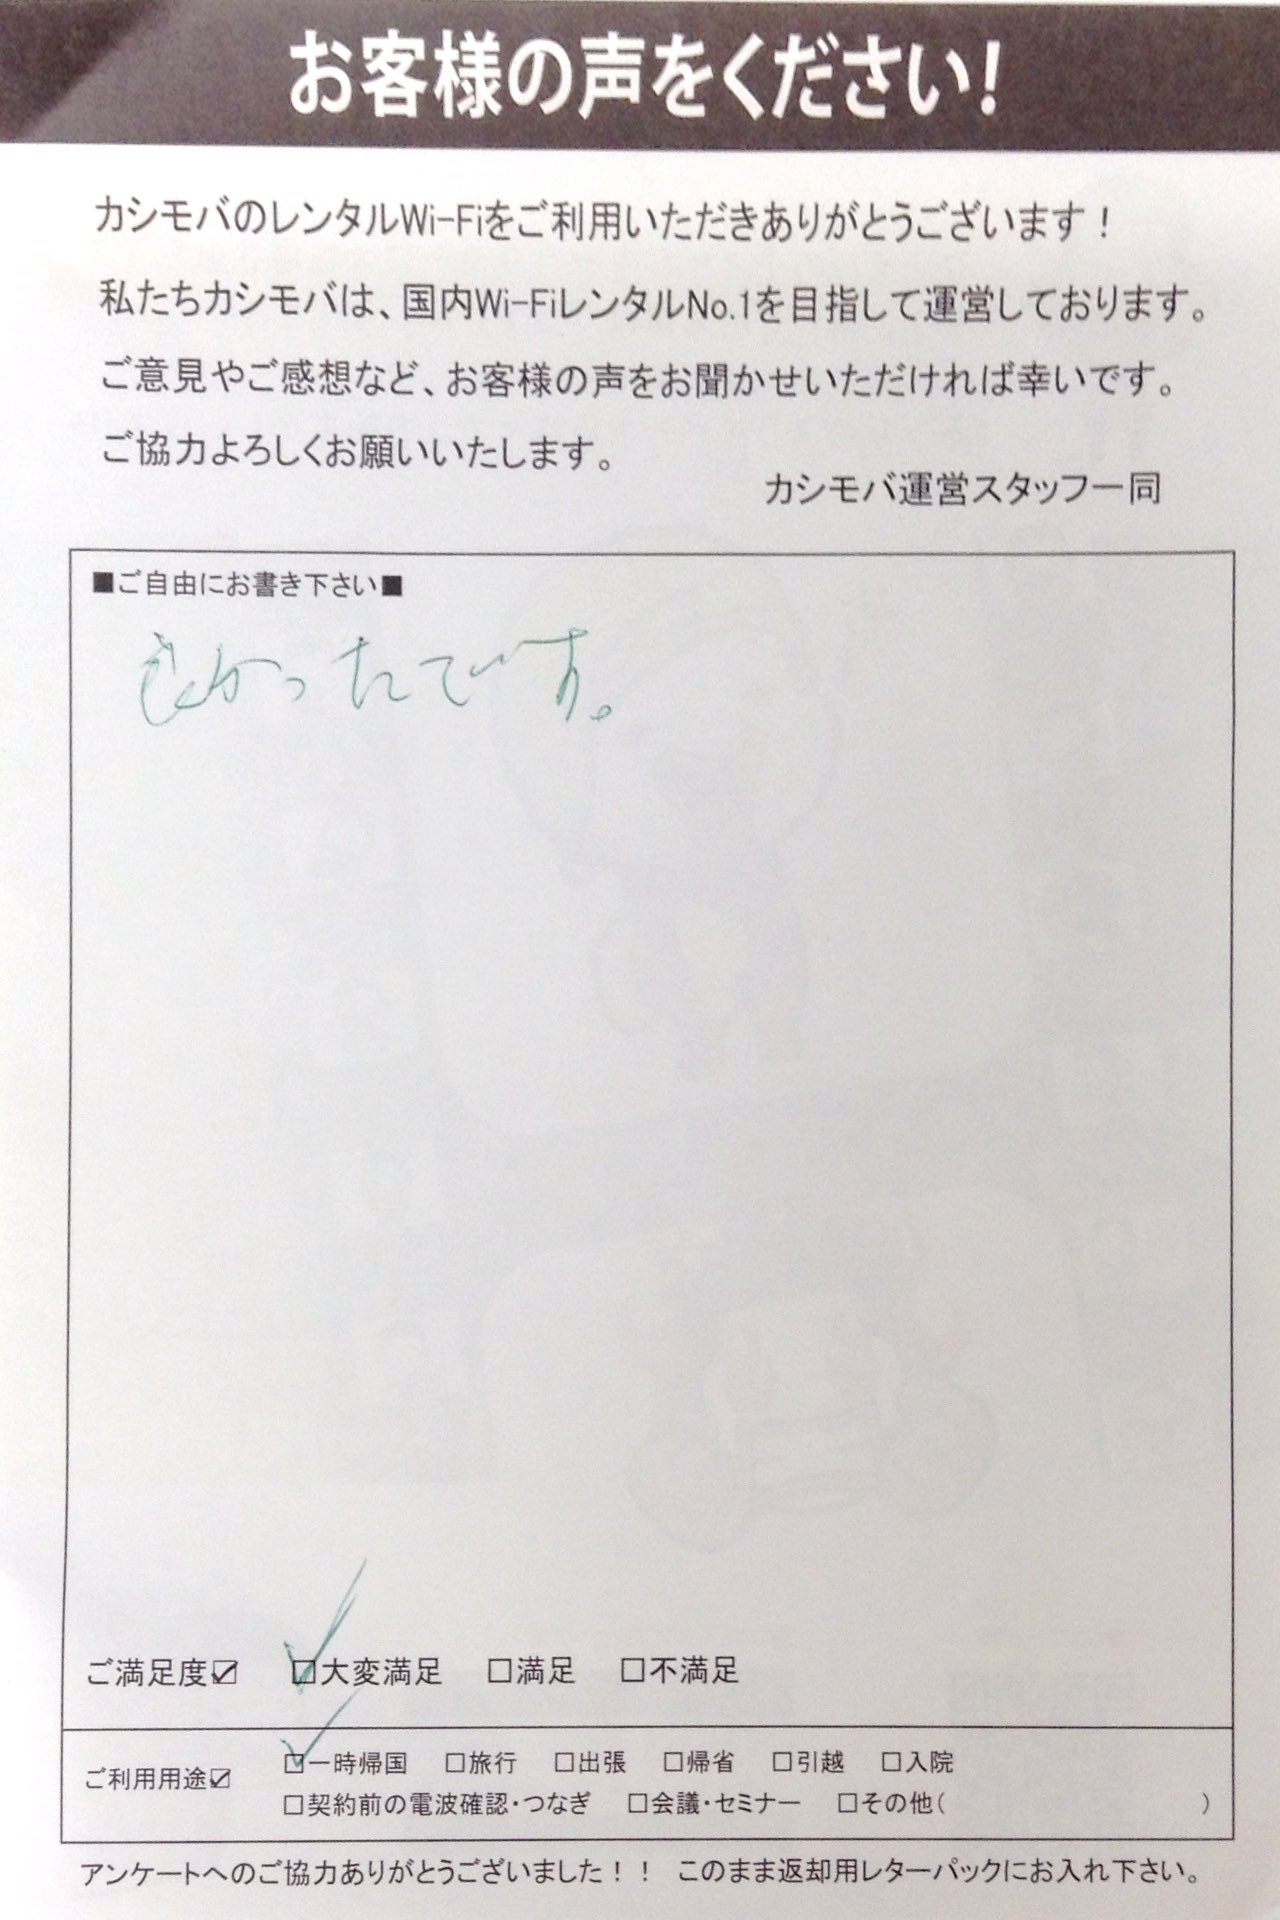 お客様の声をください!
カシモバのレンタルWi-Fiをご利用いただきありがとうございます！
私たちカシモバは、国内Wi-FiレンタルNo.1を目指して運営しております。
ご意見やご感想など、お客様の声をお聞かせいただければ幸いです。
ご協力よろしくお願いいたします。
カシモバ運営スタッフ一同
■ご自由にお書き下さい■
良かったです。
ご満足度☑ ☑大変満足 □満足 □不満足
ご利用用途☑ ☑一時帰国 □旅行 □出張 □帰省 □引越 □入院
□契約前の電波確認・つなぎ □会議・セミナー □その他( )
アンケートへのご協力ありがとうございました！！ このまま返却用レターパックにお入れ下さい。